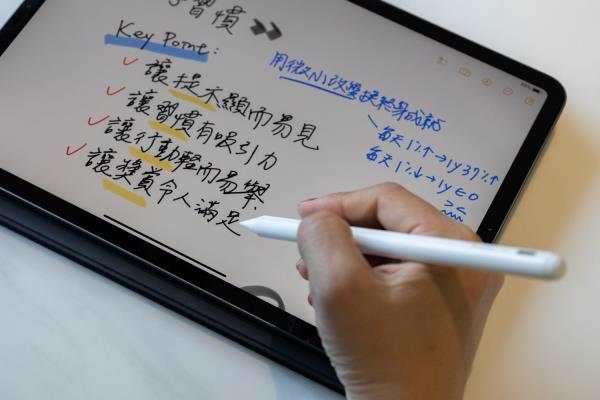 子習慣 »
Key Point:
✓ 讓提示顯而易見
✓ 讓習慣有吸引力
✓ 讓行動輕而易舉
✓ 讓獎賞令人滿足
用微小改變成就
每天1%↑→1y37%↑
每天1%↓→1y